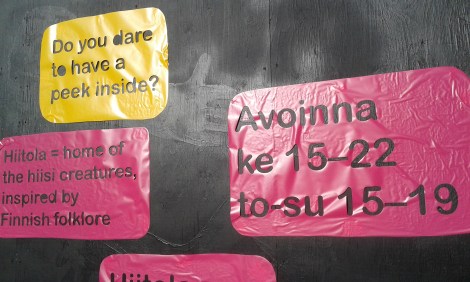 Do you dare
to have a
peek inside?
Hiitola = home of
the hiisi creatures,
inspired by
Finnish folklore
Avoinna
ke 15–22
to-su 15–19
Hiitola